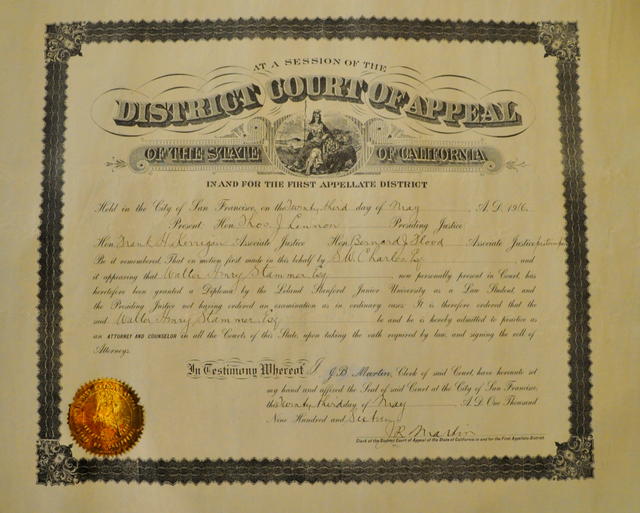 AT A SESSION OF THE
DISTRICT COURT OF APPEAL
OF THE STATE OF CALIFORNIA
IN AND FOR THE FIRST APPELLATE DISTRICT
Held in the City of San Francisco, on the Twenty third day of May A.D. 1916.
Present: Hon. Thos. J. Lennon Presiding Justice
Hon. Frank H. Kerrigan Associate Justice Hon. Bernard J. Flood Associate Justice pro tem
Be it remembered That on motion first made in this behalf by S.W. Charles Esq and
it appearing that Walter Henry Stammer Esq now personally present in Court, has
heretofore been granted a Diploma by the Leland Stanford Junior University as a Law Student, and
the Presiding Justice not having ordered an examination as in ordinary cases. It is therefore ordered the
said Walter Henry Stammer Esq be and he is hereby admitted to practice as
an ATTORNEY AND COUNSELOR in all the Courts of this State, upon taking the oath required by law, and signing the roll of
Attorneys.
In Testimony Whereof I J.B. Martin, Clerk of said Court, have hereunto set
my hand and affixed the Seal of said Court at the City of San Francisco,
this Twenty third day of May A.D. One Thousand
Nine Hundred and Sixteen
J.B. Martin
Clerk of the District Court of Appeal of the State of California in and for the First Appellate District.